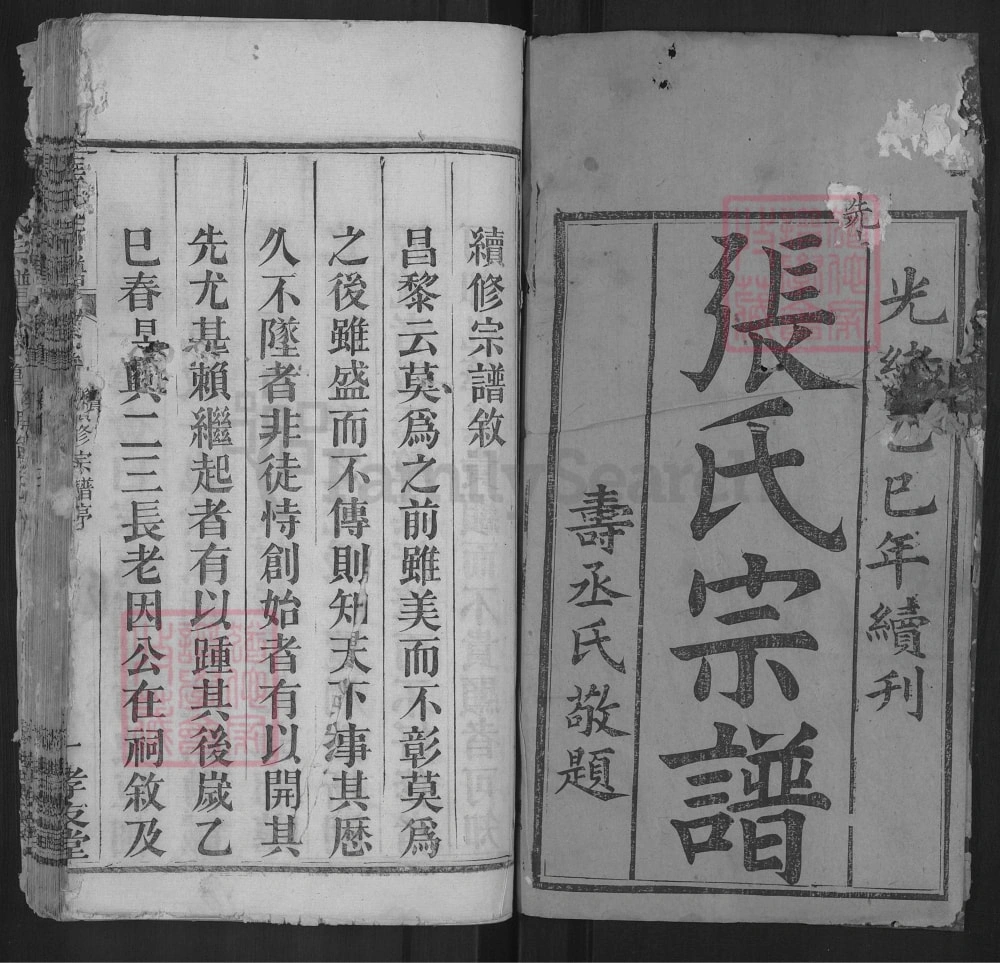 光緒乙巳年續刊
張氏宗譜
壽丞氏敬題
先
續修宗譜敘
昌黎云莫爲之前雖美而不彰莫爲
之後雖盛而不傳則知天下事其歷
久不墜者非徒恃創始者有以開其
先尤甚賴繼起者有以踵其後歲乙
巳春昊與二三長老因公在祠敘及
續修宗譜序
一 孝友堂
FamilySearch